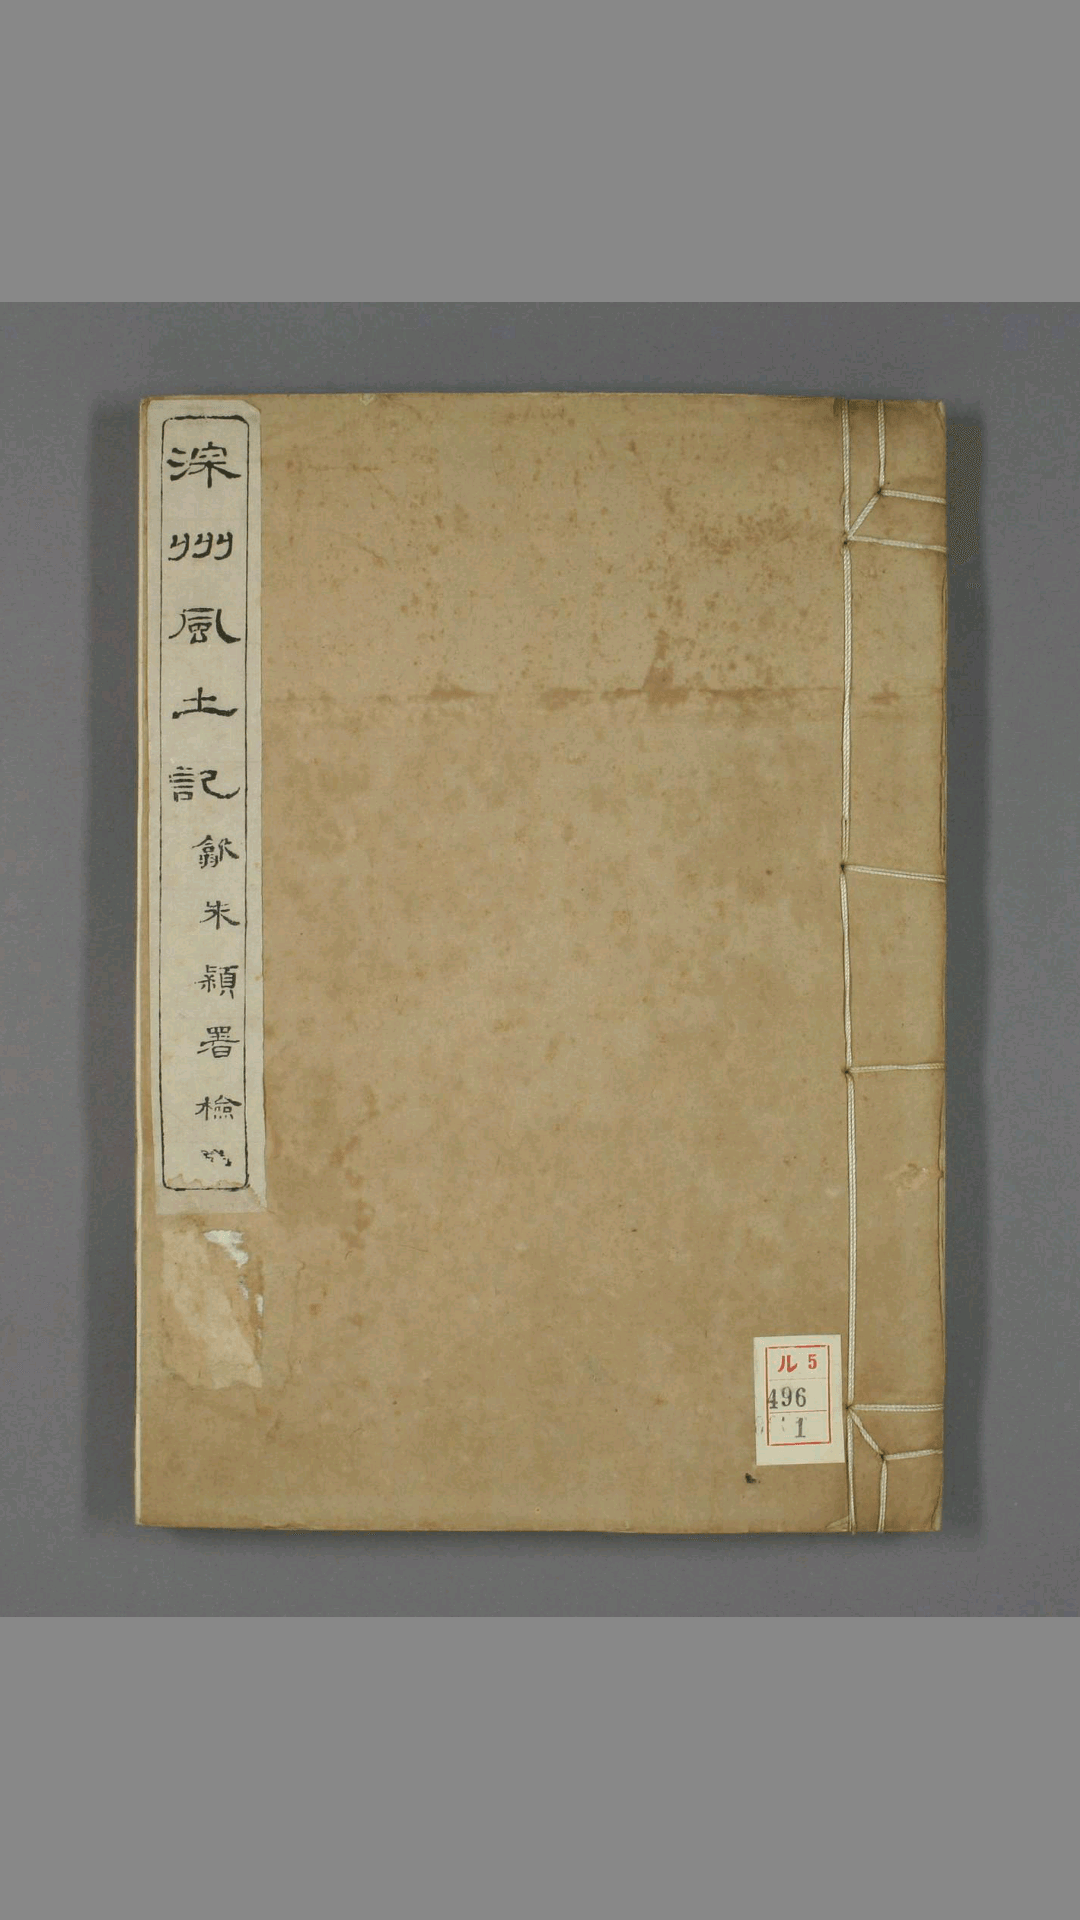 深州風土記 歙朱頴署檢
ル 5
496
1